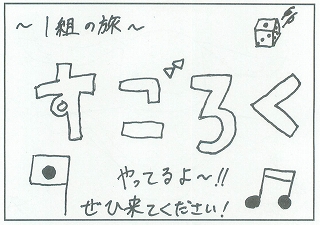 ～1組の旅～
すごろく
やってるよ～!!
ぜひ来てください!